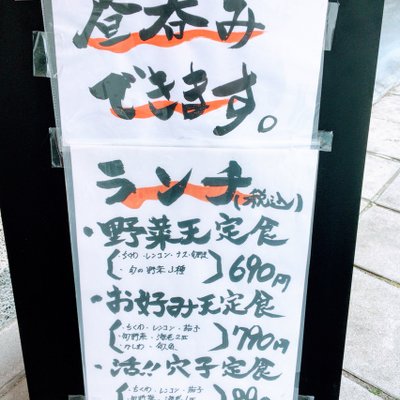 昼呑み
できます。
ランチ(税込)
・野菜天定食
ちくわ・レンコン・ナス
・旬の野菜3種
690円
・お好み天定食
・ちくわ・レンコン・茄子
旬野菜・海老2匹
790円
・活!!穴子定食
・ちくわ・レンコン・茄子